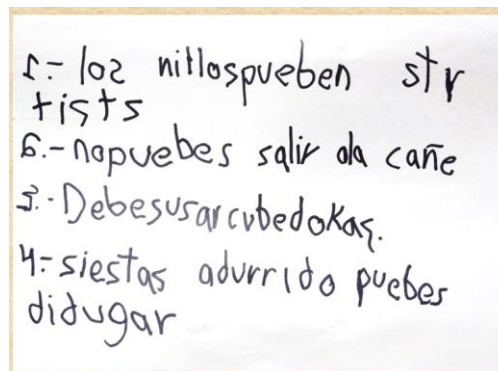 1.- los nillospueben str
tists
6.- nopuebes salir ala cañe
3.- Debesusarcubedokas.
4.- siestas adurrido puebes
didugar